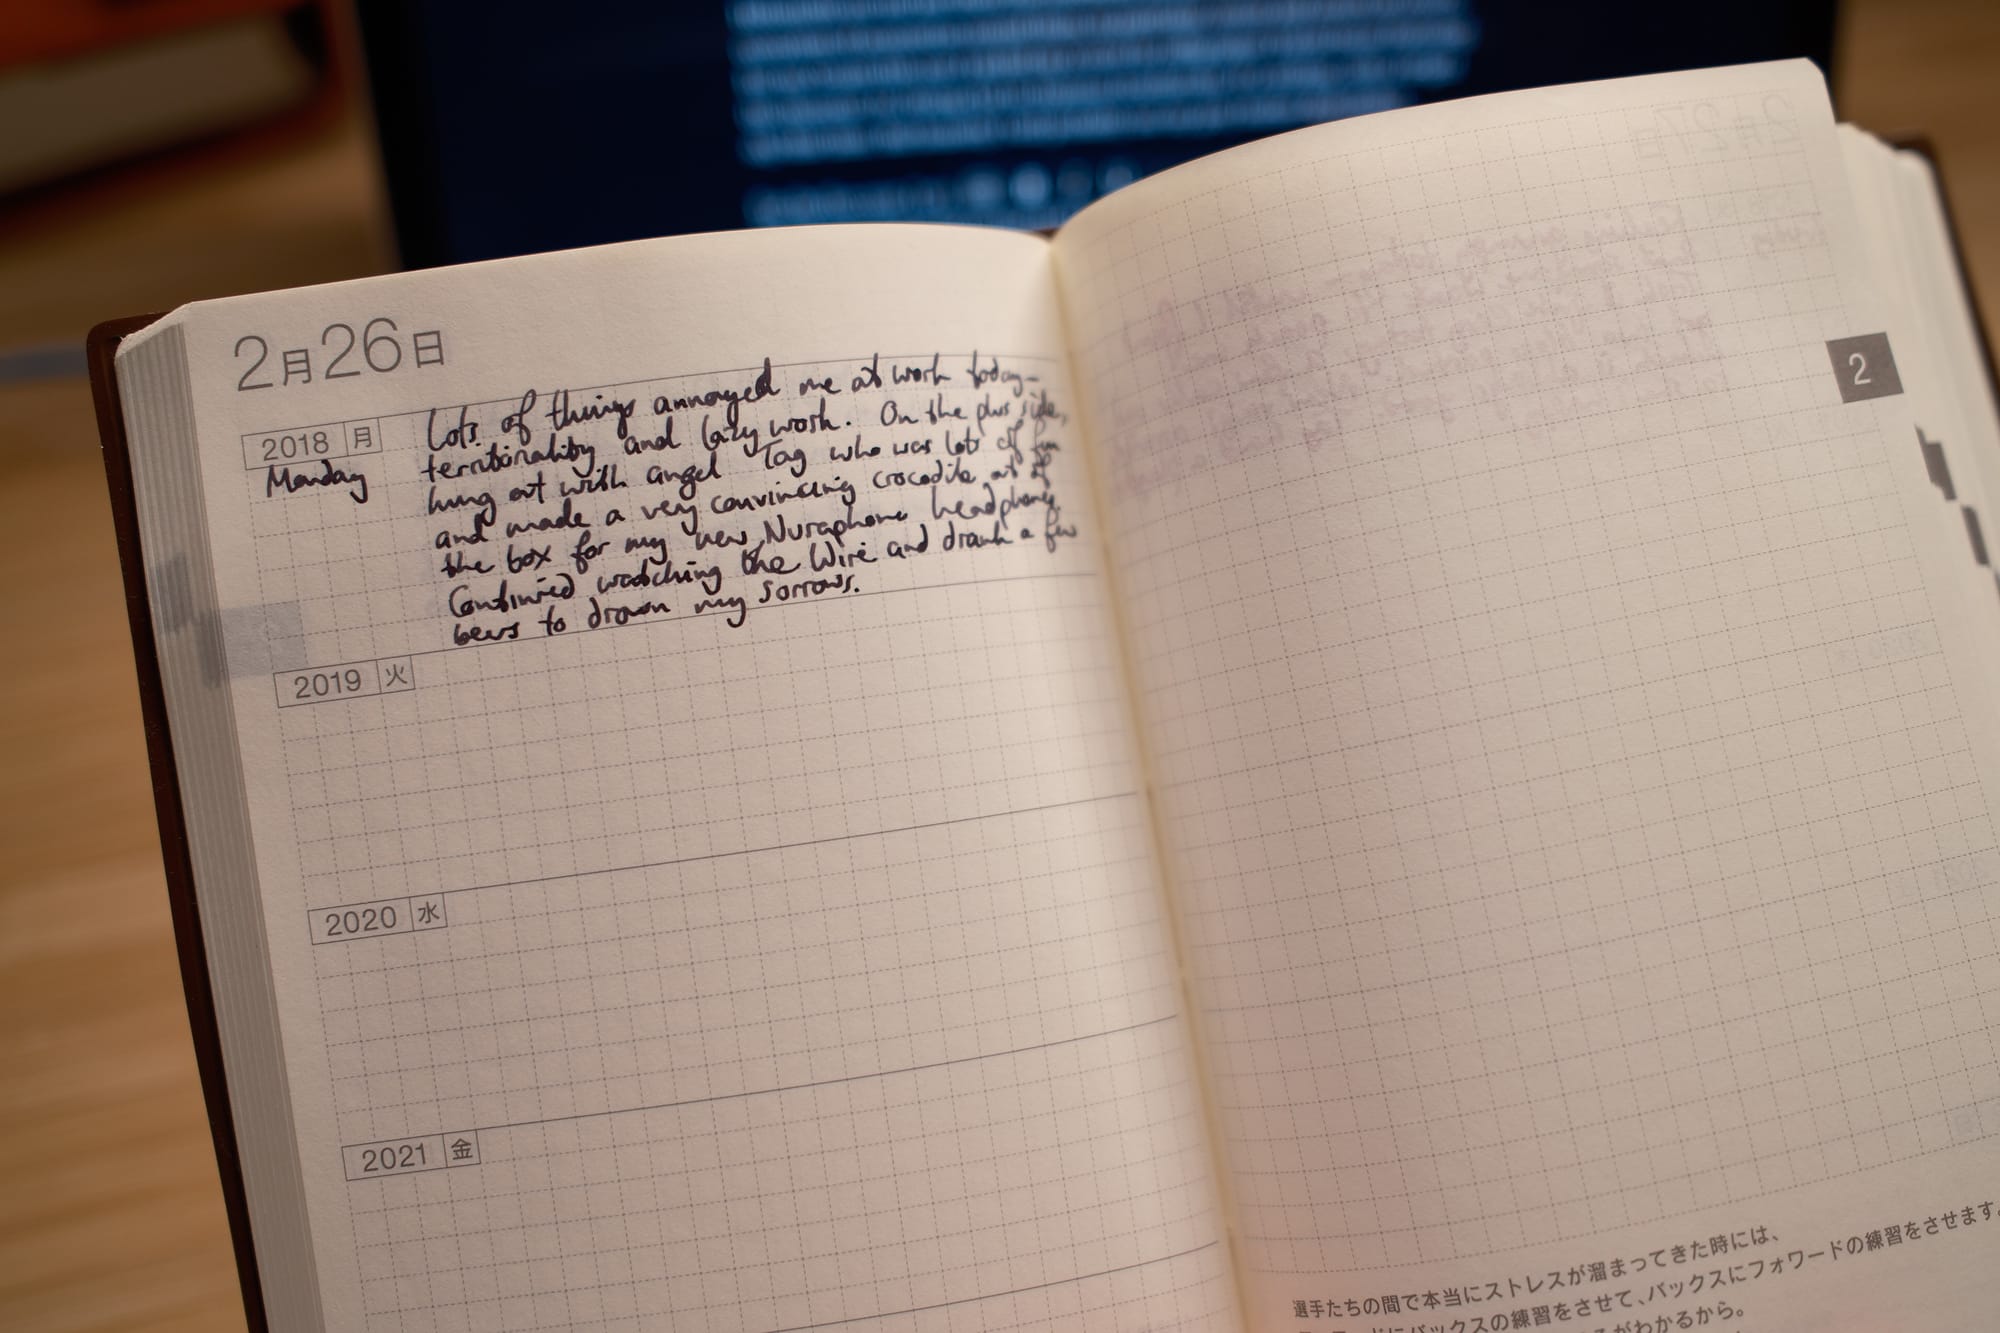 2月26日
2018 月
Monday
Lots of things annoyed me at work today –
territoriality and lazy work. On the plus side,
hung out with angel Tag who was lots of fun
and made a very convincing crocodile out of
the box for my new Nuraphone headphones.
Continued watching the Wire and drank a few
beers to drown my sorrows.
2019 火
2020 水
2021 金
2
選手たちの間で本当にストレスが溜まってきた時には、
にバックスの練習をさせて、バックスにフォワードの練習をさせます。
がわかるから。